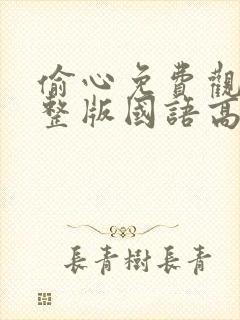 偷心免費觀
整版國語高
長青樹長青